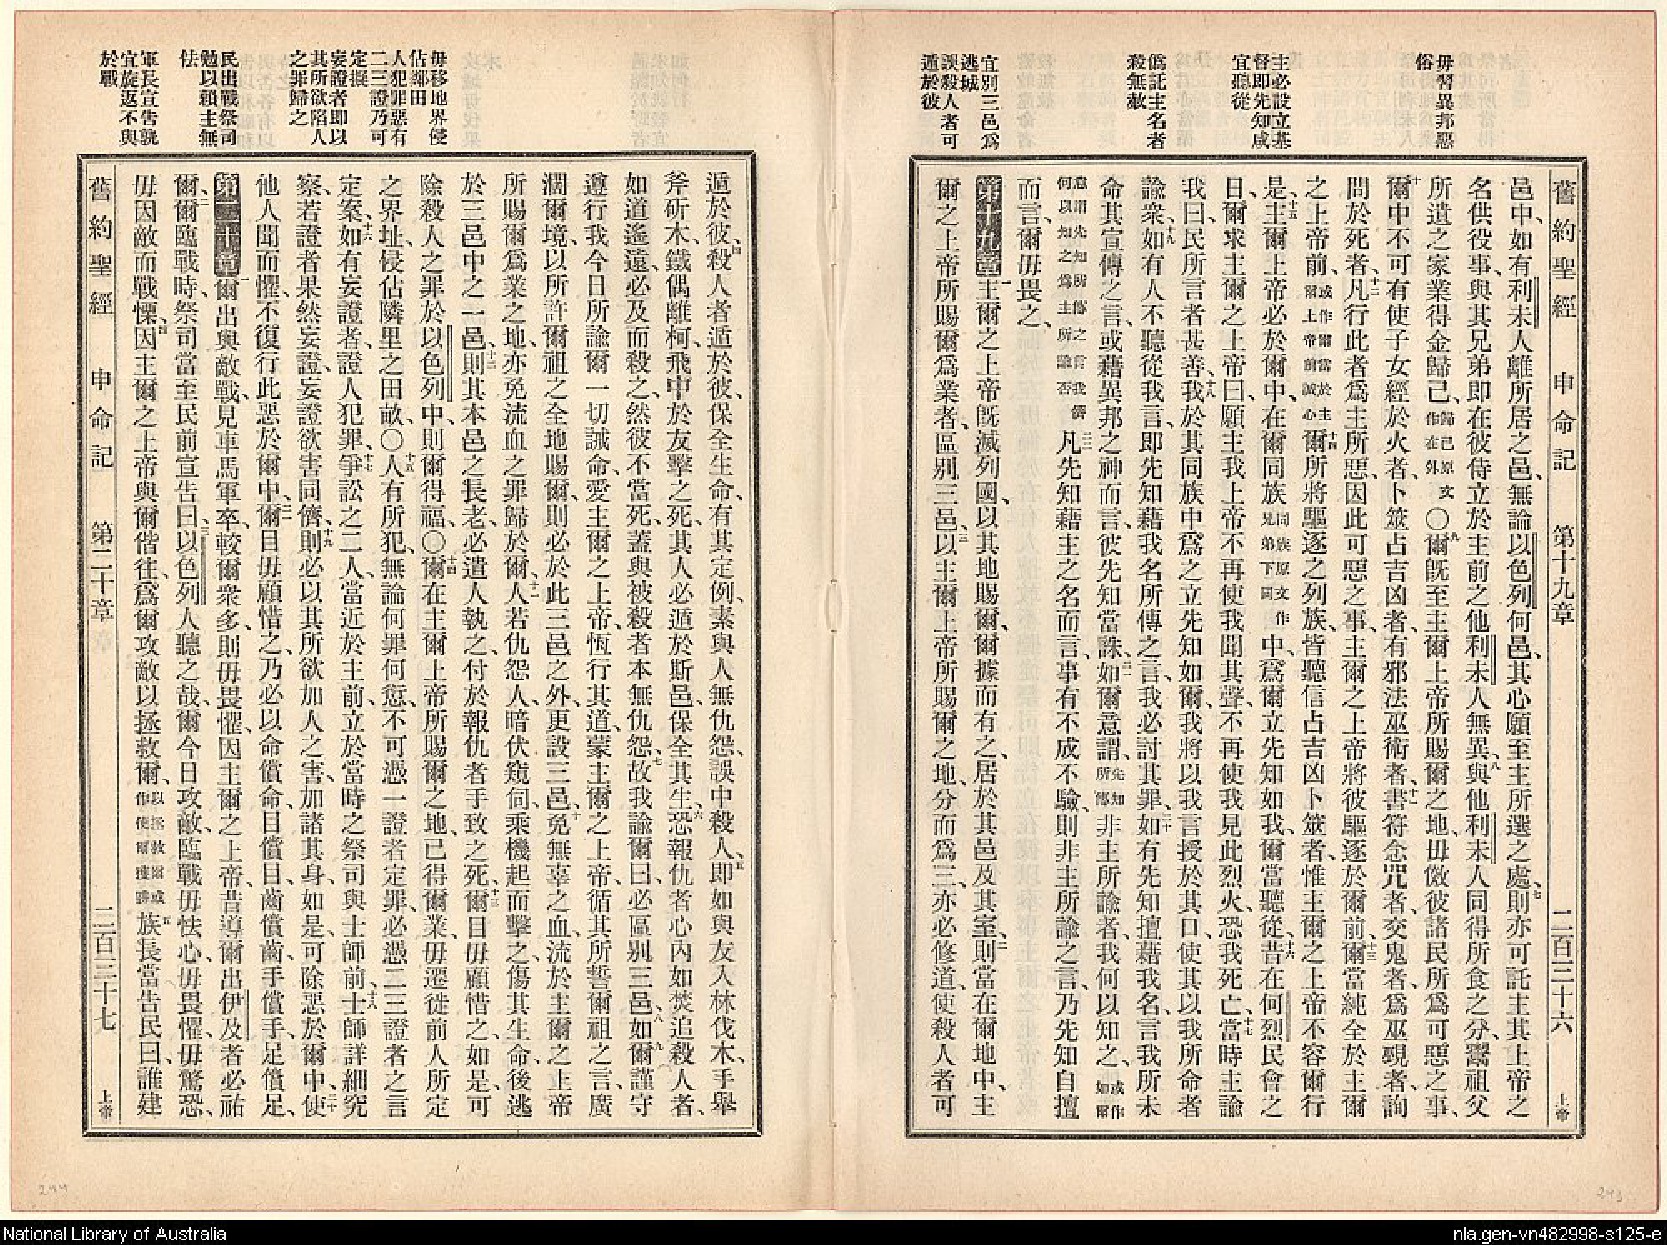 舊約聖經 申命記 第十九章 二百三十六 上帝
毋習異邦惡
俗
主必設立基
督即先知咸
宜聽從
僞託主名者
殺無赦
宜別三邑爲
逃城
誤殺人者可
遁於彼
邑中、如有利未人離所居之邑、無論以色列何邑、其心願至主所選之處、七則亦可託主其上帝之
名供役事、與其兄弟即在彼侍立於主前之他利未人無異、八與他利未人同得所食之分、鬻祖父
所遣之家業得金歸己、歸己原文作在外○九爾旣至主爾上帝所賜爾之地、毋傚彼諸民所爲可惡之事、
十爾中不可有使子女經於火者、卜筮占吉凶者、有邪法巫術者、十一書符念咒者、交鬼者、爲巫覡者、詢
問於死者、十二凡行此者爲主所惡、因此可惡之事、主爾之上帝將彼驅逐於爾前、十三爾當純全於主爾
之上帝前、或作爾當於主爾上帝前誠心十四爾所將驅逐之列族、皆聽信占吉凶卜筮者、惟主爾之上帝不容爾行
是、十五主爾上帝必於爾中、在爾同族同族原文作兄弟下同中、爲爾立先知如我、爾當聽從、十六昔在何烈民會之
日、爾求主爾之上帝曰、願主我上帝不再使我聞其聲、不再使我見此烈火、恐我死亡、十七當時主諭
我曰、民所言者甚善、十八我於其同族中爲之立先知如爾、我將以我言授於其口、使其以我所命者
諭衆、十九如有人不聽從我言、即先知藉我名所傳之言、我必討其罪、二十如有先知擅藉我名、言我所未
命其宣傳之言、或藉異邦之神而言、彼先知當誅、二一如爾意謂、先知所傳非主所諭者、我何以知之、或作如爾
意謂先知所傳之言我儕何以知之爲主所諭否二二凡先知藉主之名而言、事有不成不驗、則非主所諭之言、乃先知自擅
而言、爾毋畏之、
第十九章一主爾之上帝旣滅列國、以其地賜爾、爾據而有之、居於其邑及其室、二則當在爾地中、主
爾之上帝所賜爾爲業者、區別三邑、三以主爾上帝所賜爾之地、分而爲三、亦必修道、使殺人者可
毋移地界侵
佔鄰田
人犯罪惡有
二三證乃可
定擬
妄證者即以
其所欲陷人
之罪歸之
民出戰祭司
勉以賴主無
怯
軍長宣告孰
宜旋返不與
於戰
遁於彼、四殺人者遁於彼、保全生命、有其定例、素與人無仇怨、誤中殺人、五即如與友入林伐木、手舉
斧斫木、鐵偶離柯、飛中於友、擊之死、其人必遁於斯邑、保全其生、六恐報仇者心內如焚、追殺人者、
如道遙遠、必及而殺之、然彼不當死、蓋與被殺者本無仇怨、七故我諭爾曰、必區別三邑、八如爾謹守
遵行我今日所諭爾一切誡命、愛主爾之上帝、恆行其道、蒙主爾之上帝循其所誓爾祖之言、廣
濶爾境、以所許爾祖之全地賜爾、則必於此三邑之外、更設三邑、十免無辜之血、流於主爾之上帝
所賜爾爲業之地、亦免流血之罪歸於爾、十一人若仇怨人、暗伏窺伺、乘機起而擊之、傷其生命、後逃
於三邑中之一邑、十二則其本邑之長老、必遣人執之、付於報仇者手、致之死、十三爾目毋顧惜之、如是可
除殺人之罪於以色列中、則爾得福、○十四爾在主爾上帝所賜爾之地、已得爾業、毋遷徙前人所定
之界址、侵佔隣里之田畝、○十五人有所犯、無論何罪何愆、不可憑一證者定罪、必憑二三證者之言
定案、十六如有妄證者、證人犯罪、十七爭訟之二人、當近於主前、立於當時之祭司與士師前、十八士師詳細究
察、若證者果然妄證、妄證欲害同儕、十九則必以其所欲加人之害、加諸其身、如是可除惡於爾中、二十使
他人聞而懼、不復行此惡於爾中、二一爾目毋顧惜之、乃必以命償命、目償目、齒償齒、手償手、足償足、
第二十章一爾出與敵戰、見車馬軍卒、較爾衆多、則毋畏懼、因主爾之上帝、昔導爾出伊及者必祐
爾、二爾臨戰時、祭司當至民前宣告曰、三以色列人聽之哉、爾今日攻敵、臨戰毋怯心、毋畏懼、毋驚恐、
毋因敵而戰慄、四因主爾之上帝與爾偕往、爲爾攻敵以拯救爾、以拯救爾或作使爾獲勝五族長當告民曰、誰建
舊約聖經 申命記 第二十章 二百三十七 上帝
244
243
National Library of Australia
nla.gen-vn482998-s125-e